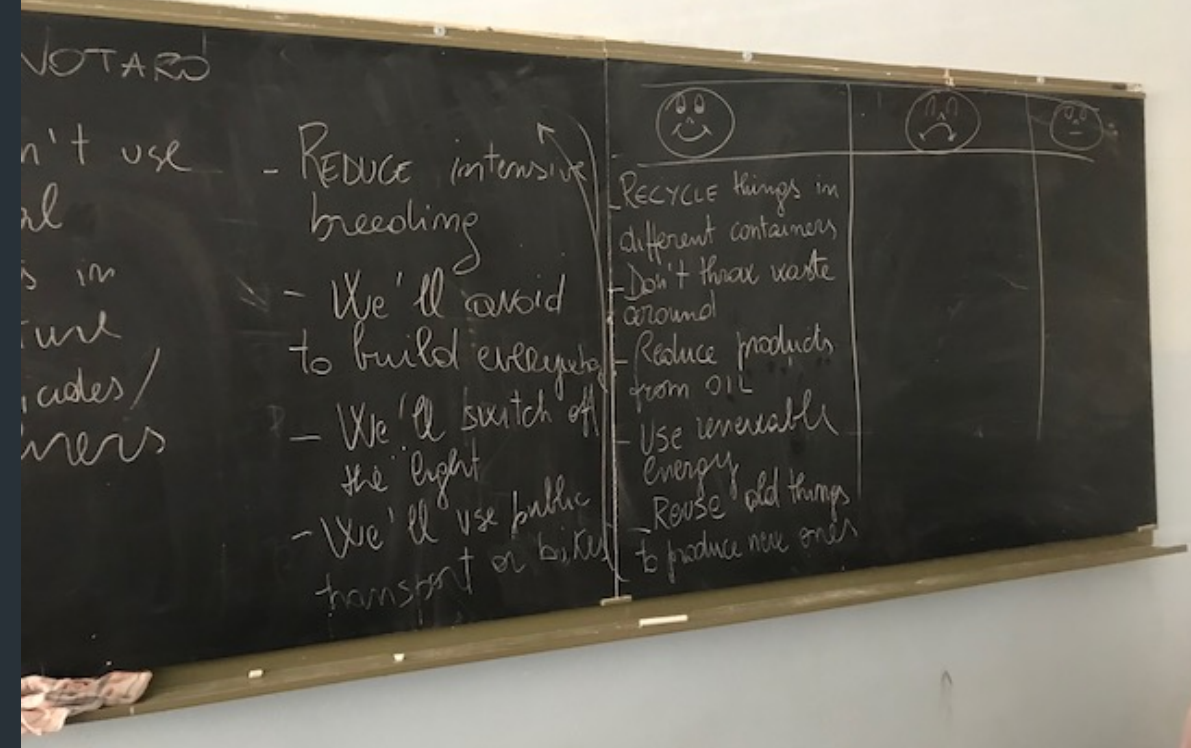 VOTARO
n't use
al
s in
ture
cides/
ners
- REDUCE intensive
breeding
- We'll avoid
to build everywhe
- We'll switch off
the light
- We'll use public
transport or bikes
- RECYCLE things in
different containers
- Don't throw waste
around
- Reduce products
from OIL
- Use renewable
energy
- Reuse old things
to produce new ones